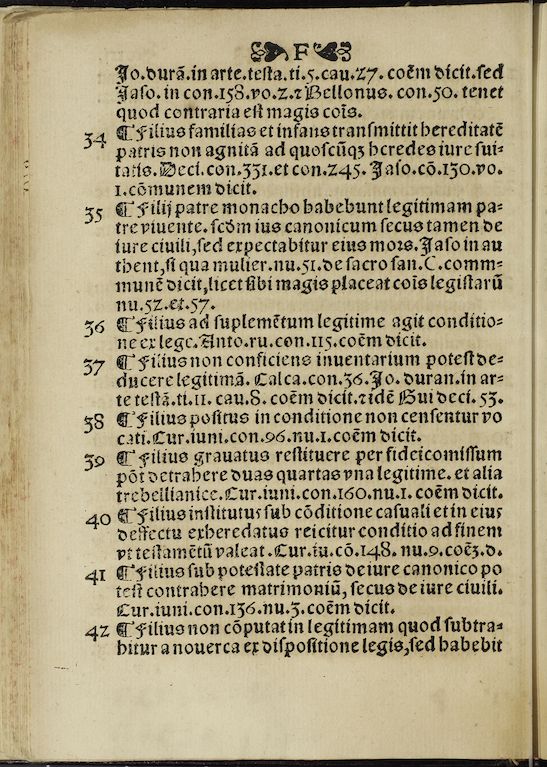 F
Jo.durã.in arte.testa.ti.5.cau.27. coẽm dicit.sed
Jaso. in con.158.vo.2.⁊ Bellonus. con.50. tenet
quod contraria est magis coĩs.
34 ¶ Filius familias et infans transmittit hereditatẽ
patris non agnitã ad quoscũq3 heredes iure sui-
tatis. Deci.con.331.et con.245. Jaso.cõ.130.vo.
1.cõmunem dicit.
35 ¶ Filij patre monacho habebunt legitimam pa-
tre viuente. scđm ius canonicum secus tamen de
iure ciuili,sed expectabitur eius mors.Jaso in au
thent,si qua mulier.nu.51.de sacro san.C.comm-
munẽ dicit,licet sibi magis placeat coĩs legistarũ
nu.52.et.57.
36 ¶ Filius ad suplemẽtum legitime agit conditio-
ne ex lege.Anto.ru.con.115.coẽm dicit.
37 ¶ Filius non conficiens inuentarium potest de-
ducere legitimã. Calca.con.36.Jo.duran.in ar-
te testã.ti.11. cau.8. coẽm dicit.⁊ idẽ Gui deci. 53.
38 ¶ Filius positus in conditione non censentur vo
cati.Cur.iuni.con.96.nu.1.coẽm dicit.
39 ¶ Filius grauatus restituere per fideicomissum
põt detrahere duas quartas vna legitime. et alia
trebellianice.Cur.iuni.con.160.nu.1. coẽm dicit.
40 ¶ Filius institutus sub cõditione casuali et in eius
deffectu exheredatus reicitur conditio ad finem
vt testamẽtũ valeat.Cur.iu.cõ.148. nu.9.coẽ3.d.
41 ¶ Filius sub potestate patris de iure canonico po
test contrahere matrimoniũ, secus de iure ciuili.
Cur.iuni.con.136.nu.3.coẽm dicit.
42 ¶ Filius non cõputat in legitimam quod subtra-
hitur a nouerca ex dispositione legis,sed habebit